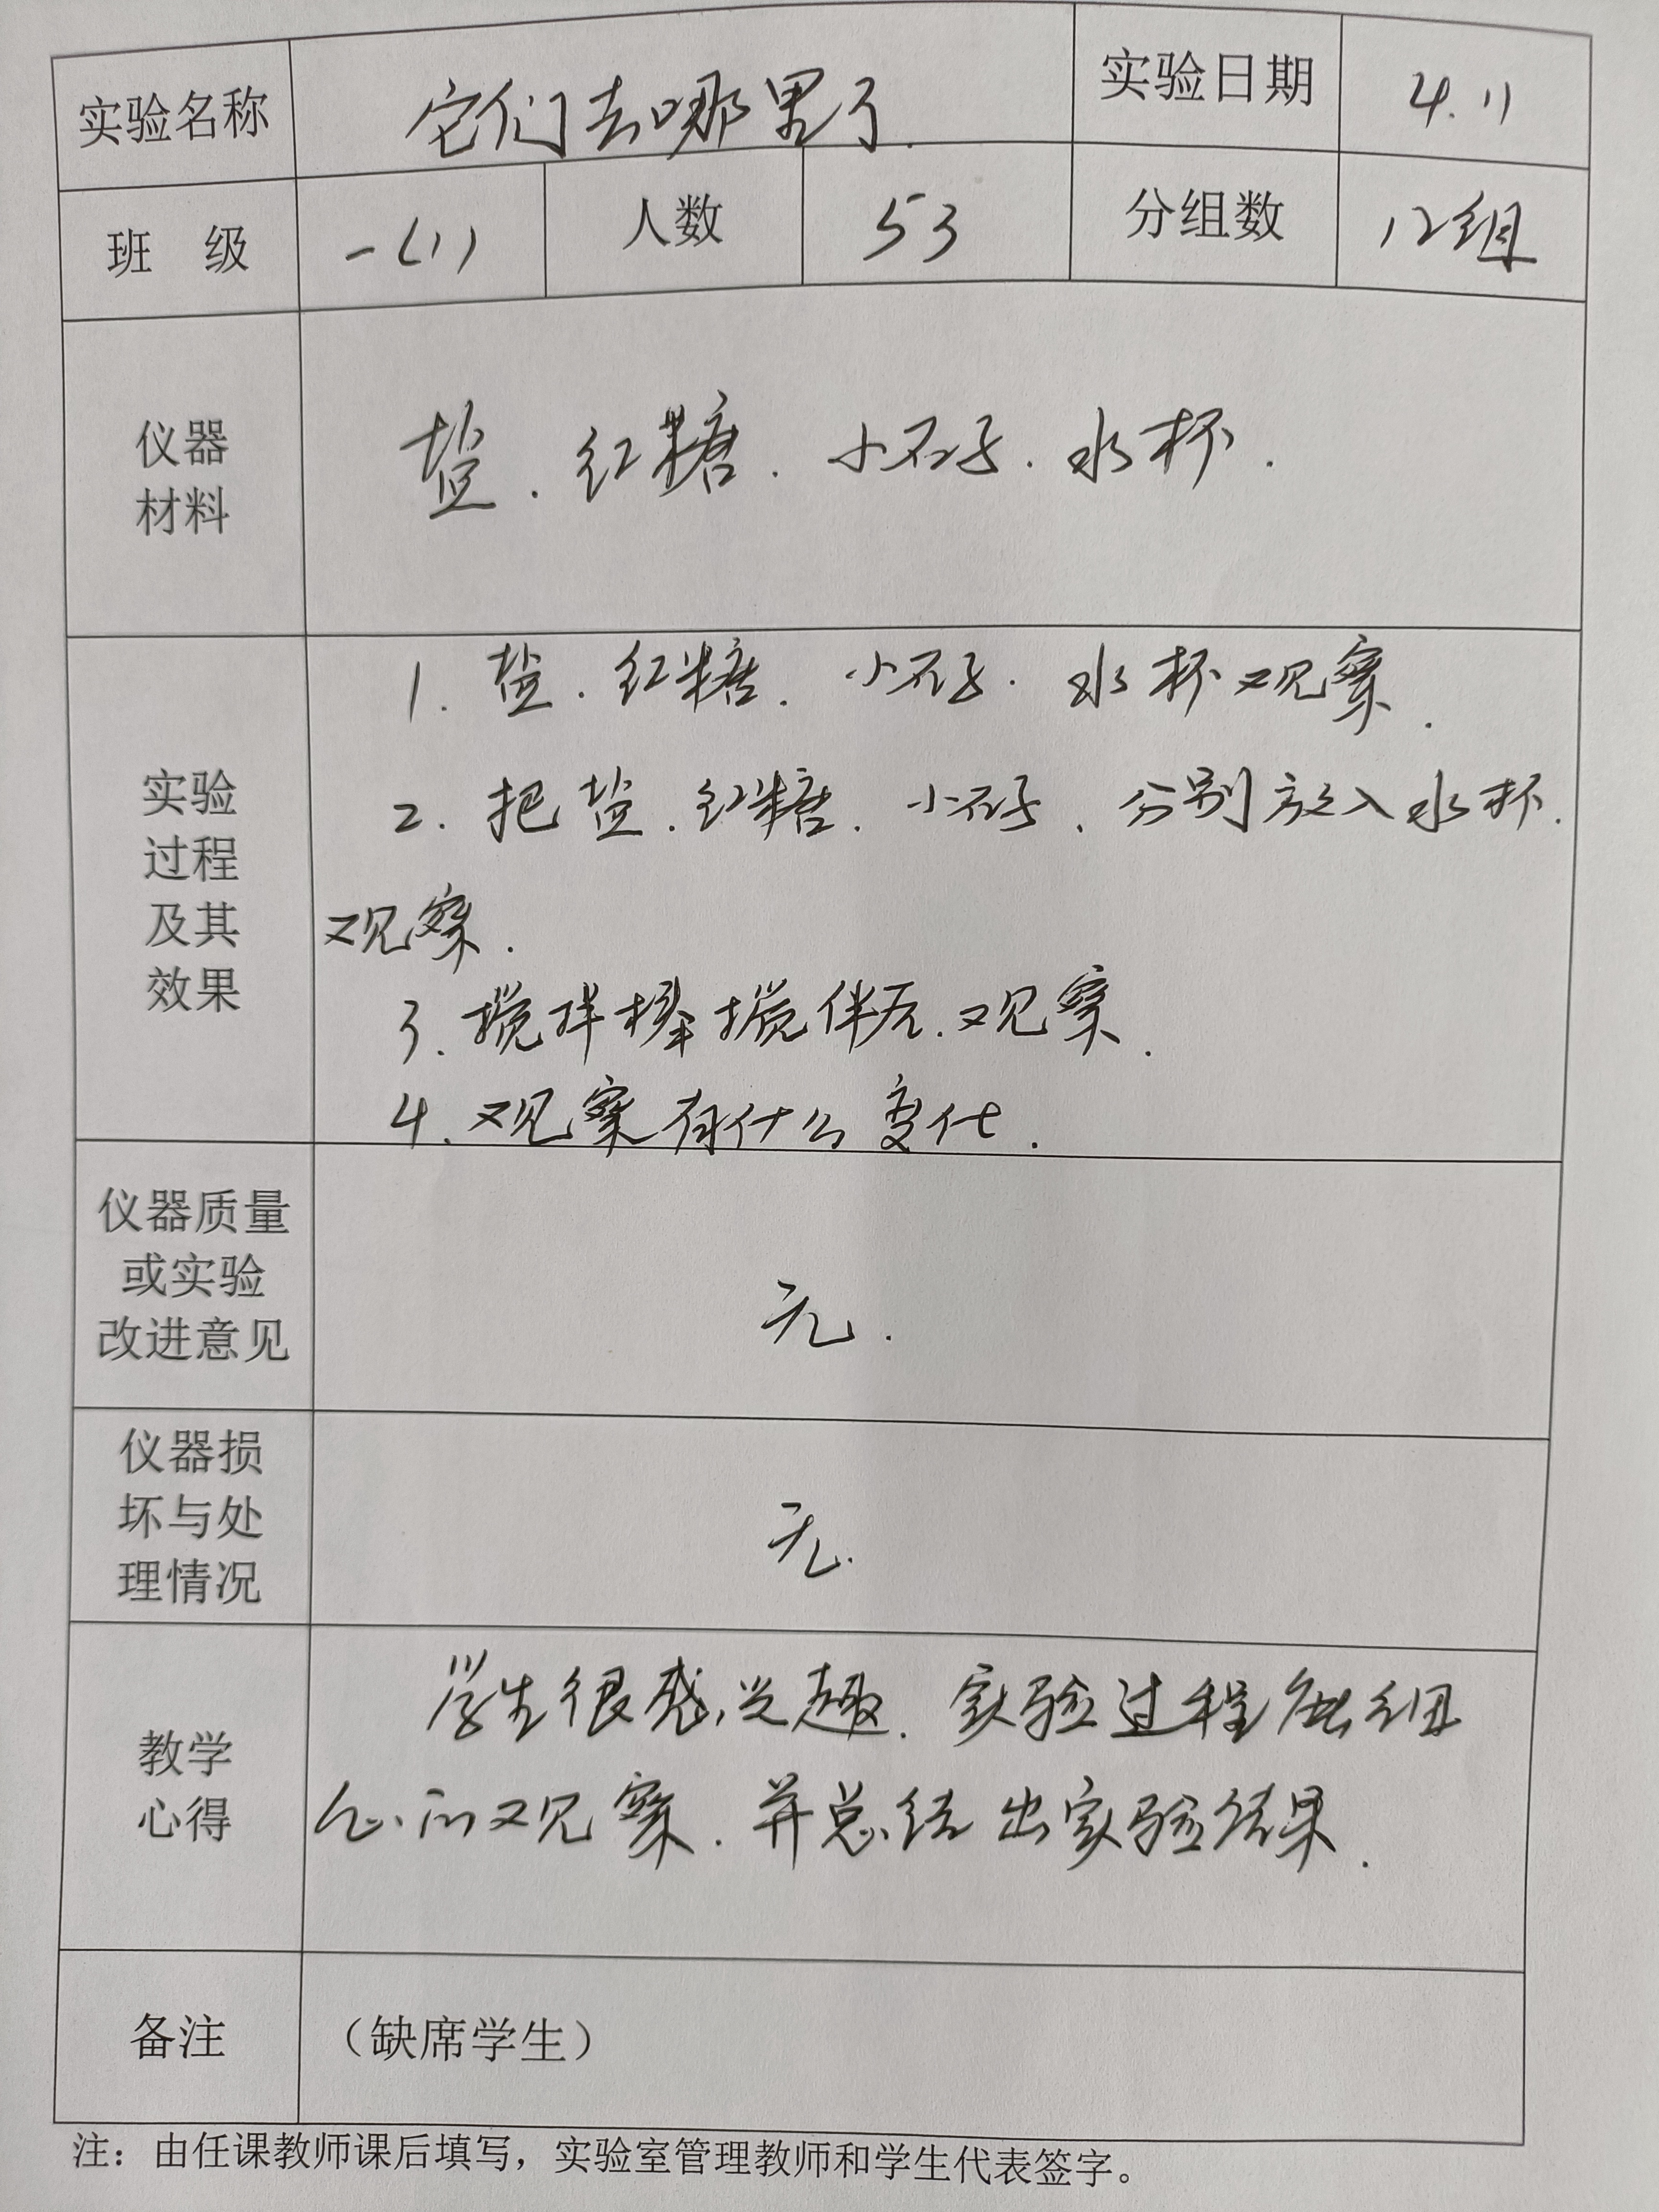 实验名称 它们去哪里了. 实验日期 4.11
班 级 一(1) 人数 53 分组数 12组
仪器
材料
盐.红糖.小石子.水杯.
实验
过程
及其
效果
1.盐.红糖.小石子.水杯观察.
2.把盐.红糖.小石子.分别放入水杯.
观察.
3.搅拌棒搅伴后.观察.
4.观察有什么变化.
仪器质量
或实验
改进意见
无.
仪器损
坏与处
理情况
无.
教学
心得
学生很感兴趣.实验过程能细
心的观察.并总结出实验结果.
备注 (缺席学生)
注：由任课教师课后填写，实验室管理教师和学生代表签字。